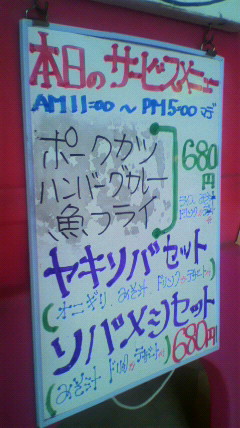 本日のサービスメニュー
AM11:00 〜 PM5:00マデ
ポークカツ
ハンバーグカレー
魚フライ
680円
ヤキソバセット
(オニギリ みそ汁 ドリンク デザート)
ソバメシセット
(みそ汁 ドリンク デザート) 680円